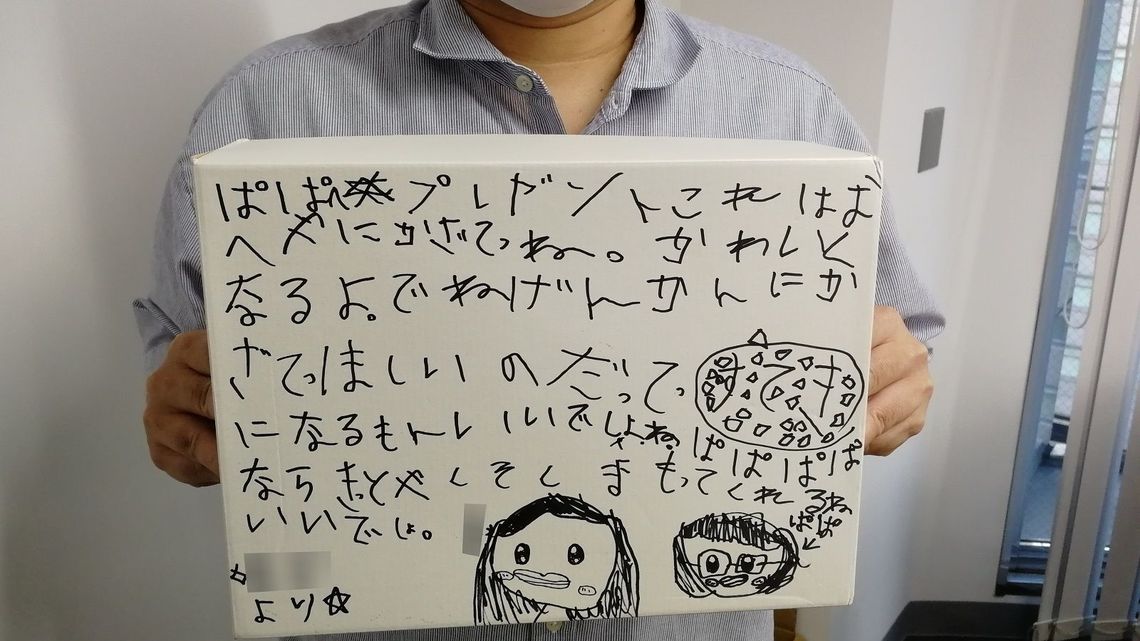 ぱぱへ プレゼントこれはお
へやにかざてっね。かわしく
なるよ。でねげんかんにか
ざてっほしいのだってっ すてき
になるもんしいいでしょね。ぱぱぱぱ
ならきっとやくそくまもってくれるね
いいでしょ。
ぱぱ
か
より☆